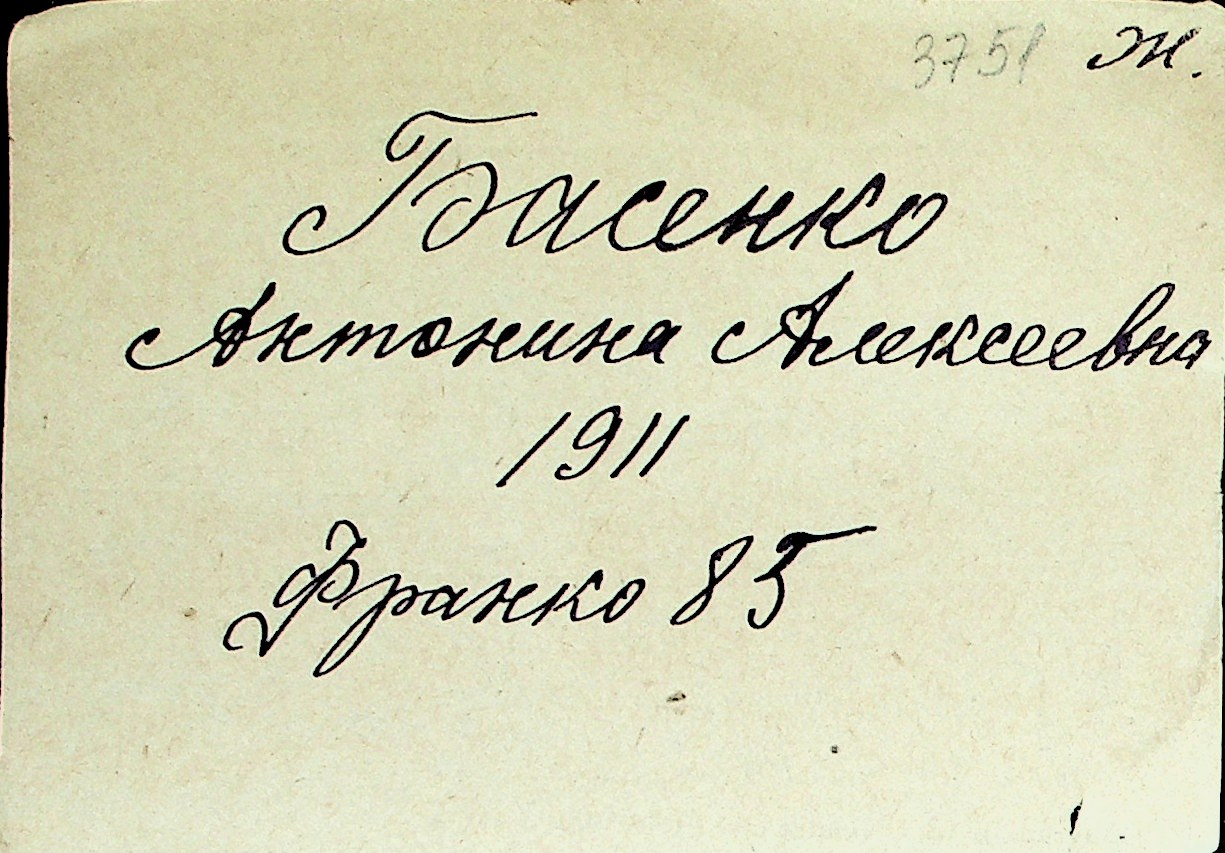 3751 ж.
Басенко
Антонина Алексеевна
1911
Франко 85